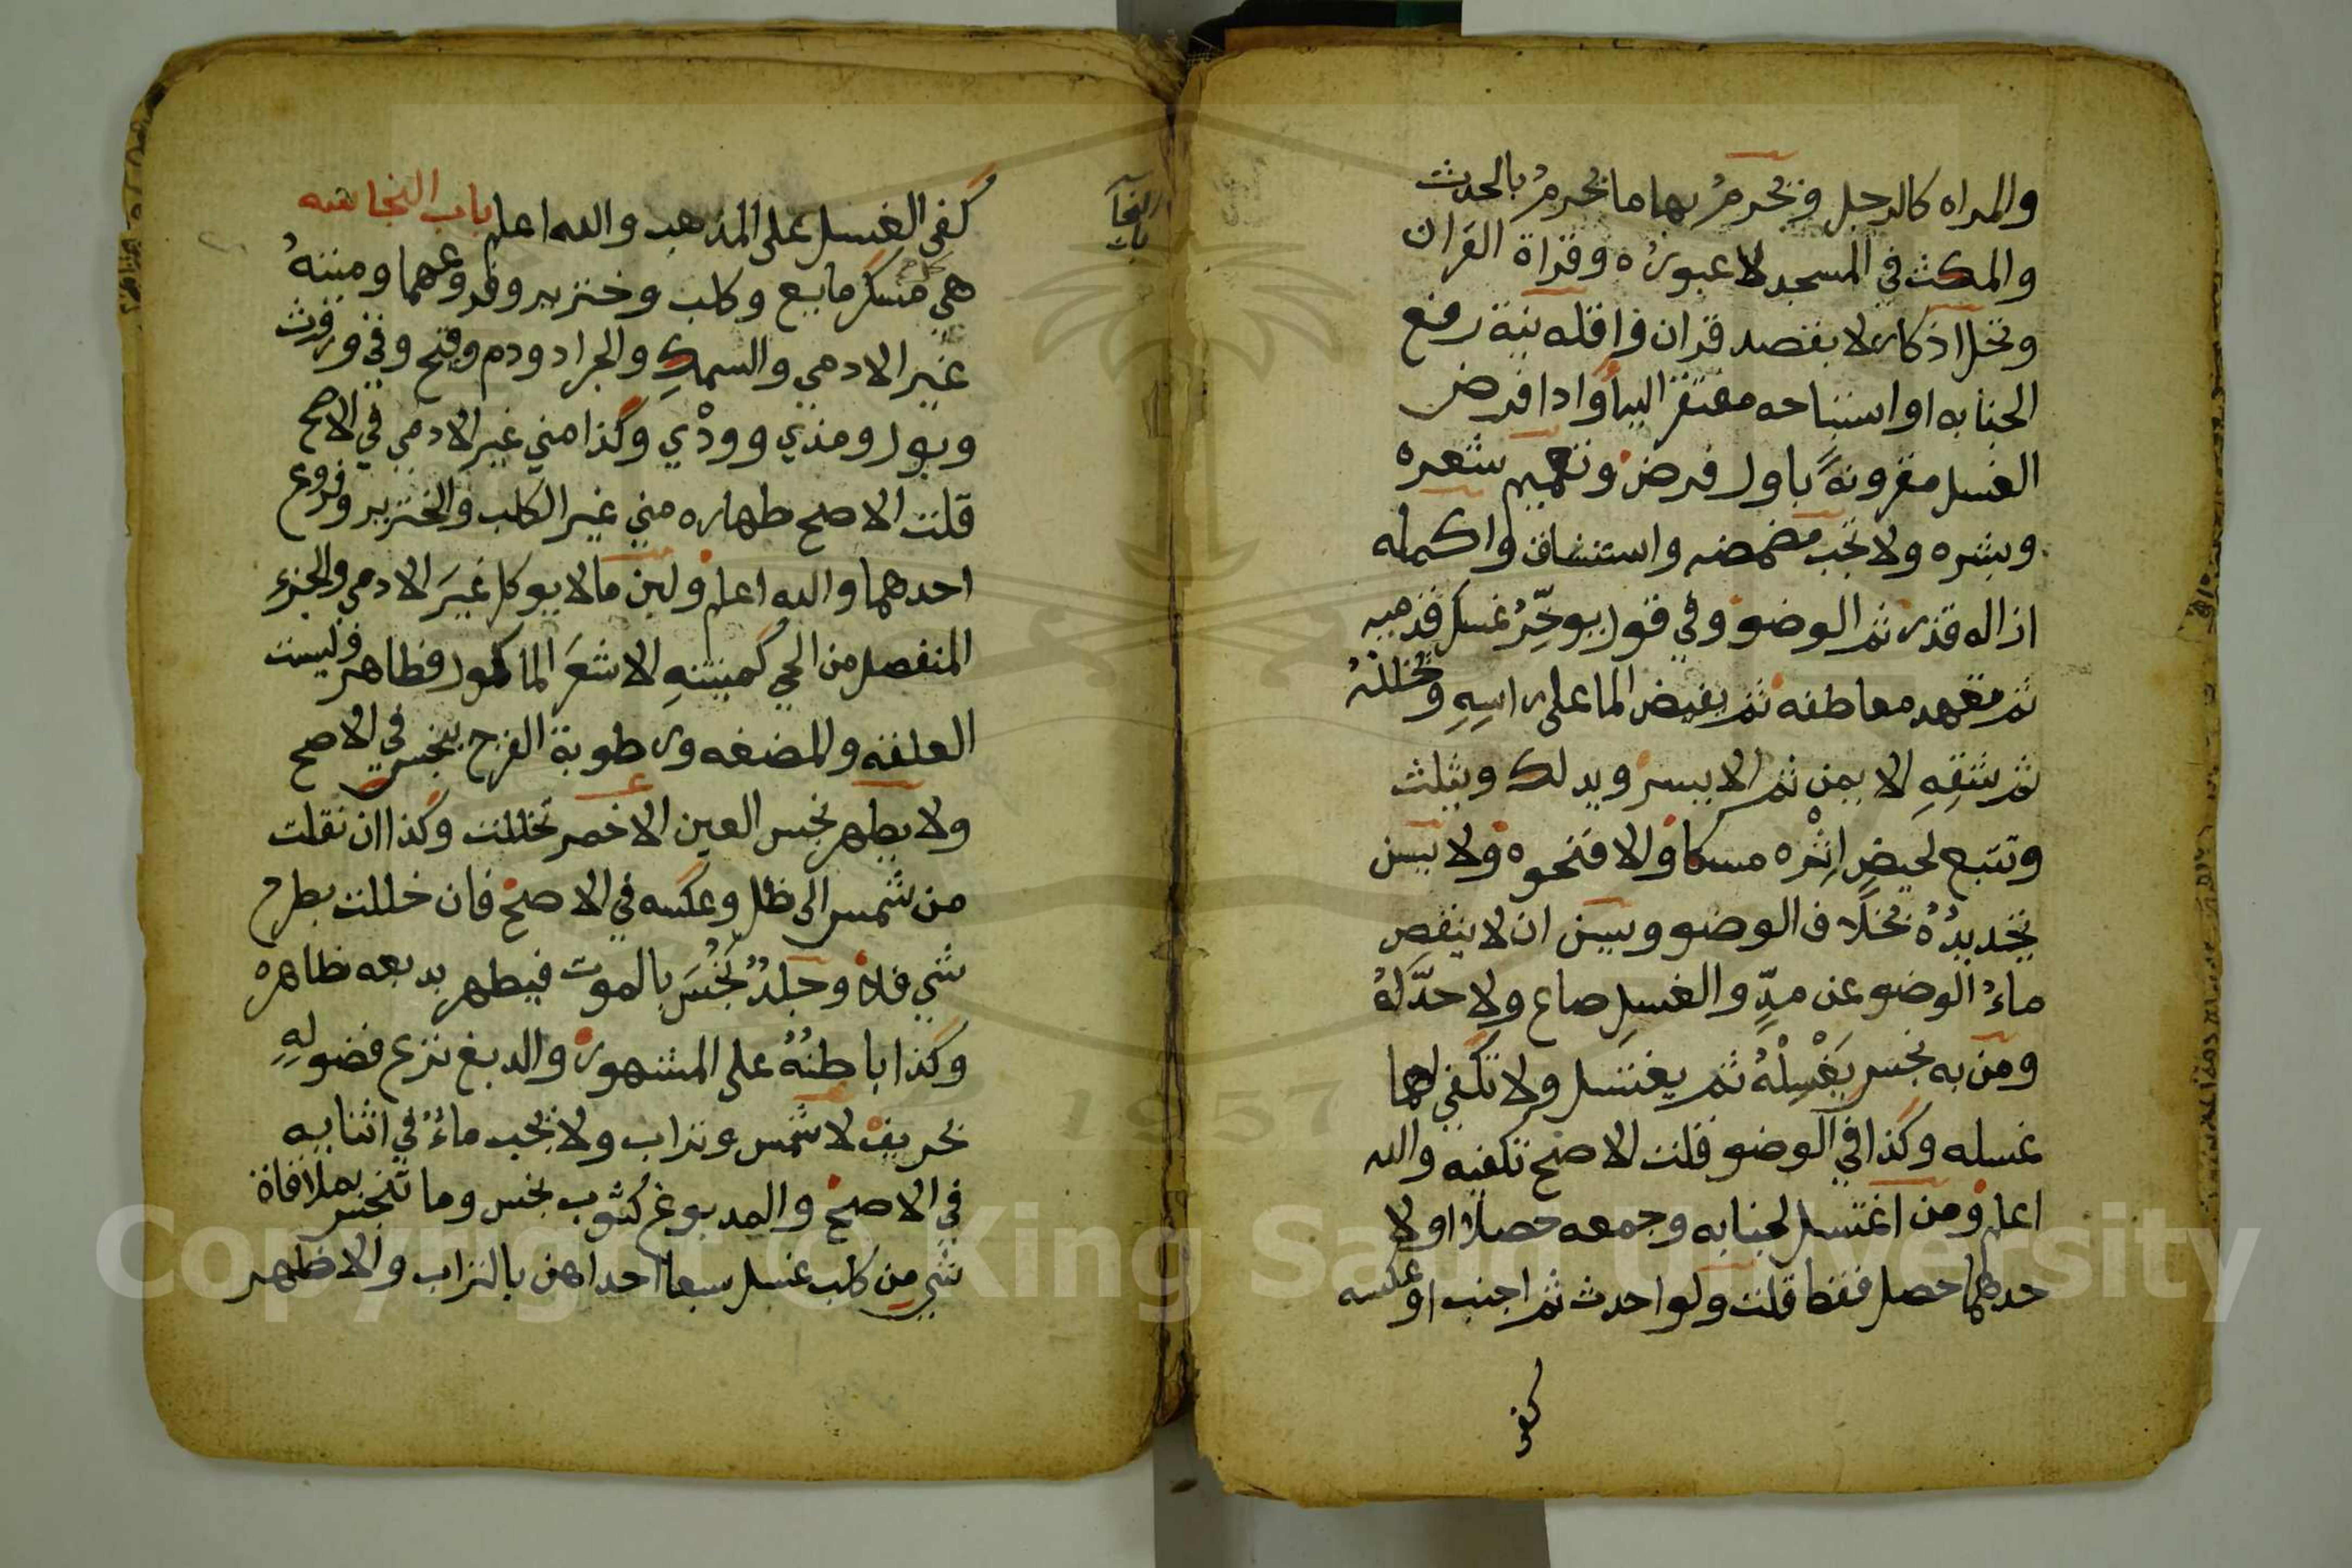 والمراه كالرجل ويحرمُ بها ما يحرمُ بالحدث
والمكث في المسجد لا عبورُه وقراة القران
وتحل اذكاره لا بقصد قران واقله نية رفع
الجنابه او استباحه مفتقر اليها او ادا فرض
الغسل مقرونةً باول فرض وتعميم شعره
وبشره ولا تجب مضمضه واستنشاق واكمله
ازاله قذر ثم الوضو وفي قول يوخِّرُ غسل قدميه
ثم تعهد معاطفه ثم يفيض الما على راسِهِ ويخللهُ
ثم شقِهِ الايمن ثم الايسر ويدلك ويثلث
وتتبع لحيضٍ اثْره مسكا والا فنحوه ولا يسن
تجديدُهُ بخلاف الوضو ويسن ان لا ينقص
ماءُ الوضو عن مدٍّ والغسلِ صاع ولا حدَّ لهُ
ومن به نجس يَغْسِلْهُ ثم يغتسل ولا تكفي لهما
غسله وكذا في الوضو قلت الاصح تكفيه والله
اعلم ومن اغتسل لجنابه وجمعه حصلا او لا
حدهما حصل فقط قلت ولو احدث ثم اجنب او عكسه
كفى
باب
النجا
كفى الغسل على المذهب والله اعلم باب النجاسه
هي كل مسكر مايع وكلب وخنزير وفروعهما وميتهُ
غير الادمي والسمكِ والجراد ودم وقيح وقي وروث
وبول ومذي وودْي وكذا مني غير الادمي في الاصح
قلت الاصح طهاره مني غير الكلب والخنزير وفروع
احدهما والله اعلم ولبن ما لا يوكل غيرَ الادمي والجزء
المنفصل من الحي كميتتهِ الا شعرَ الماكول فطاهر وليست
العلقه والمضغه ورطوبة الفرج بنجس في الاصح
ولا يطهر نجس العين الا خمر تخللت وكذا ان نقلت
من شمس الى ظل وعكسه في الاصح فان خللت بطرح
شي فلا وجلدٌ نَجُسَ بالموت فيطهر بدبغه ظاهره
وكذا باطنُهُ على المشهور والدبغ نزع فضولهِ
بحريف لا شمس وتراب ولا يجب ماءُ في اثنايه
في الاصح والمدبوغ كثوب نجس وما تنجس بملاقاة
شي من كلب غسل سبعا احداهن بالتراب والاظهر